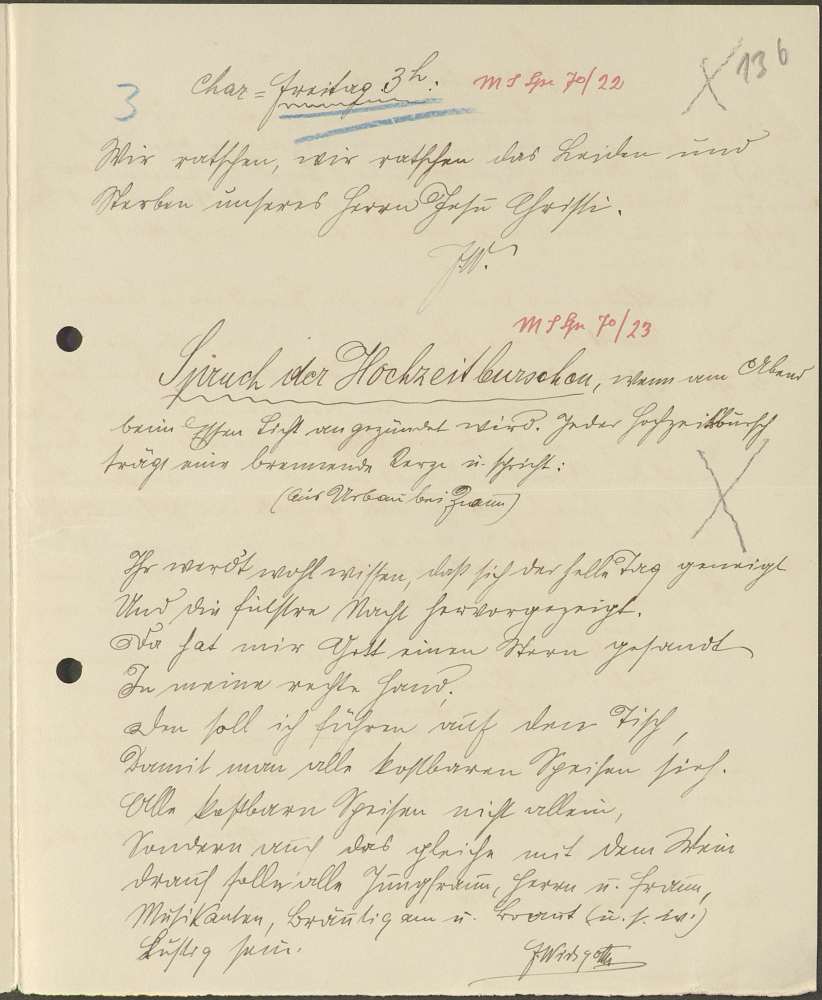 3 Char=freitag. 3h. MS Spr 70/22 13 b
Wir ratschen, wir ratschen das Leiden und
Sterben unseres Herrn Jesu Christi.
MS Spr 70/23
Spruch der Hochzeitburschen, wenn am Abend
beim Essen Licht angezündet wird. Jeder Hochzeitbursch
trägt eine brennende Kerze u. spricht:
(Aus Urbau bei Znaim)
Ihr werdt wohl wissen, daß sich der helle Tag geneigt
Und die finstre Nacht hervorgezeigt.
Da hat mir Gott einen Stern gesandt
In meine rechte Hand.
Den soll ich führen auf den Tisch,
Damit man alle kostbaren Speisen sieh.
Alle kostbarn Speisen nicht allein,
Sondern auch das gleiche mit dem Wein
Drauf solln alle Jungfraun, Herrn u. Fraun,
Musikanten, Bräutigam u. Braut (u. s. w.)
Lustig sein.